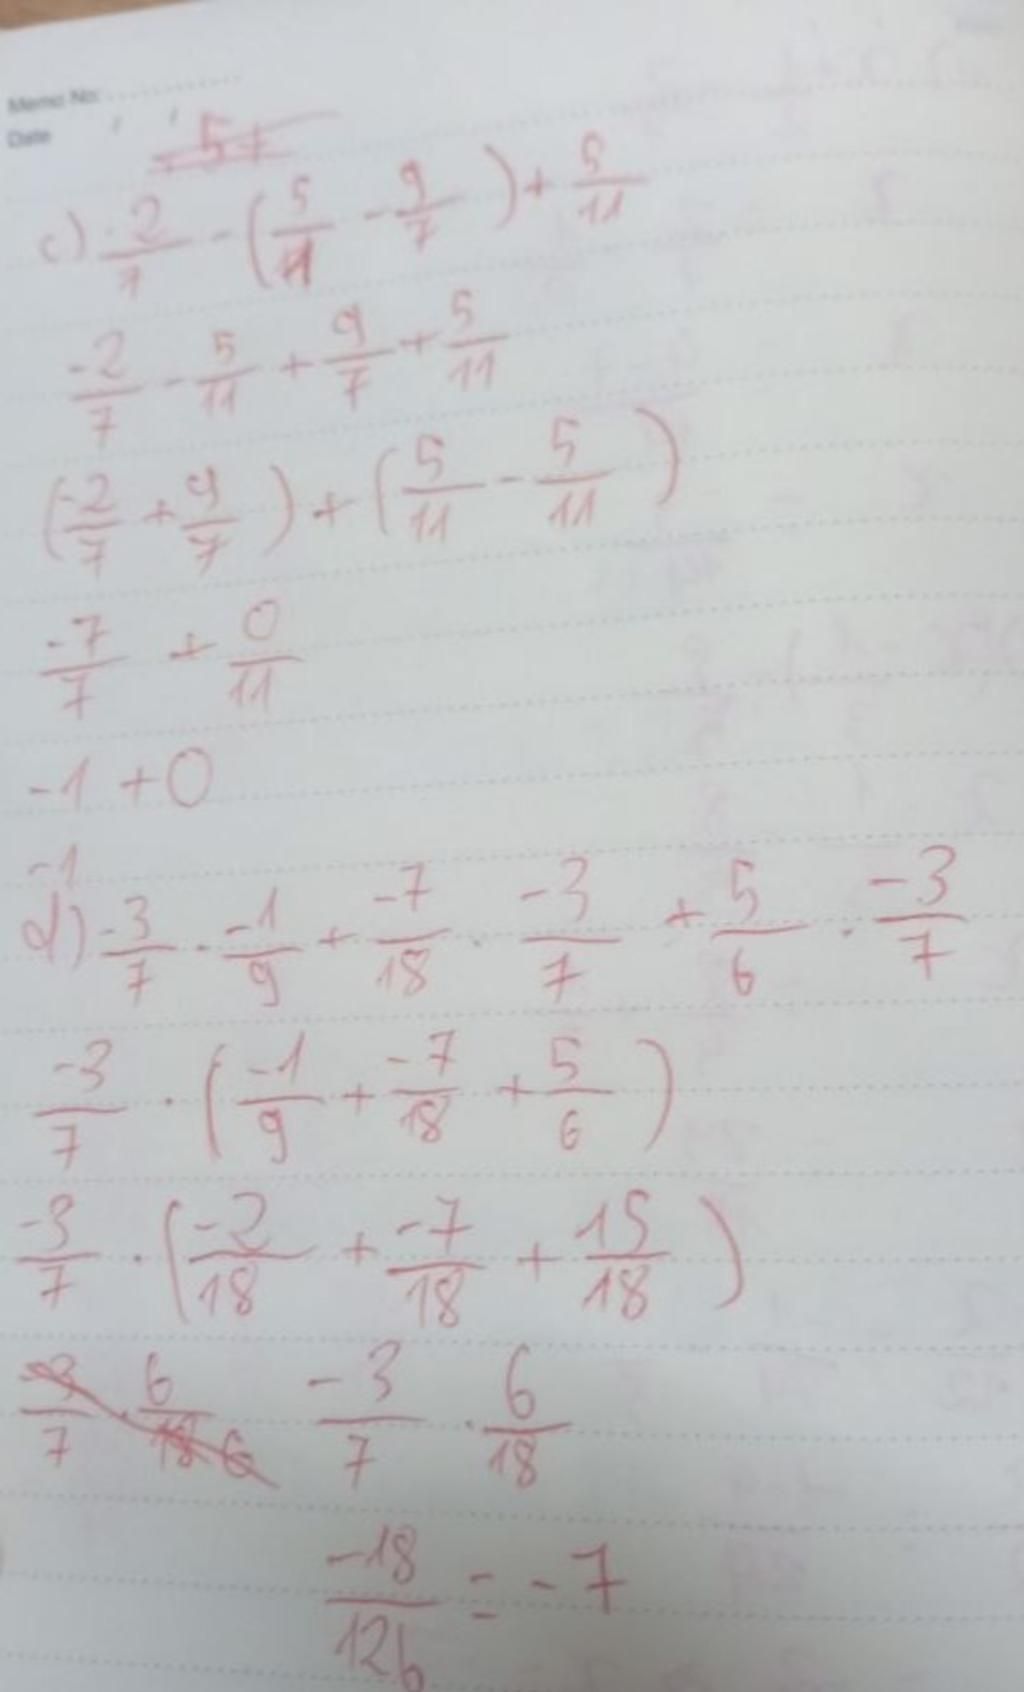 Memo No:
Date / /
5+
c) -2/7 - (5/11 - 9/7) + 5/11
-2/7 - 5/11 + 9/7 + 5/11
(-2/7 + 9/7) + (5/11 - 5/11)
-7/7 + 0/11
-1 + 0
-1
d) -3/7 . -1/9 + -7/18 . -3/7 + 5/6 . -3/7
-3/7 . (-1/9 + -7/18 + 5/6)
-3/7 . (-2/18 + -7/18 + 15/18)
-3/7 . 6/18 6 -3/7 . 6/18
-18/126 = -7